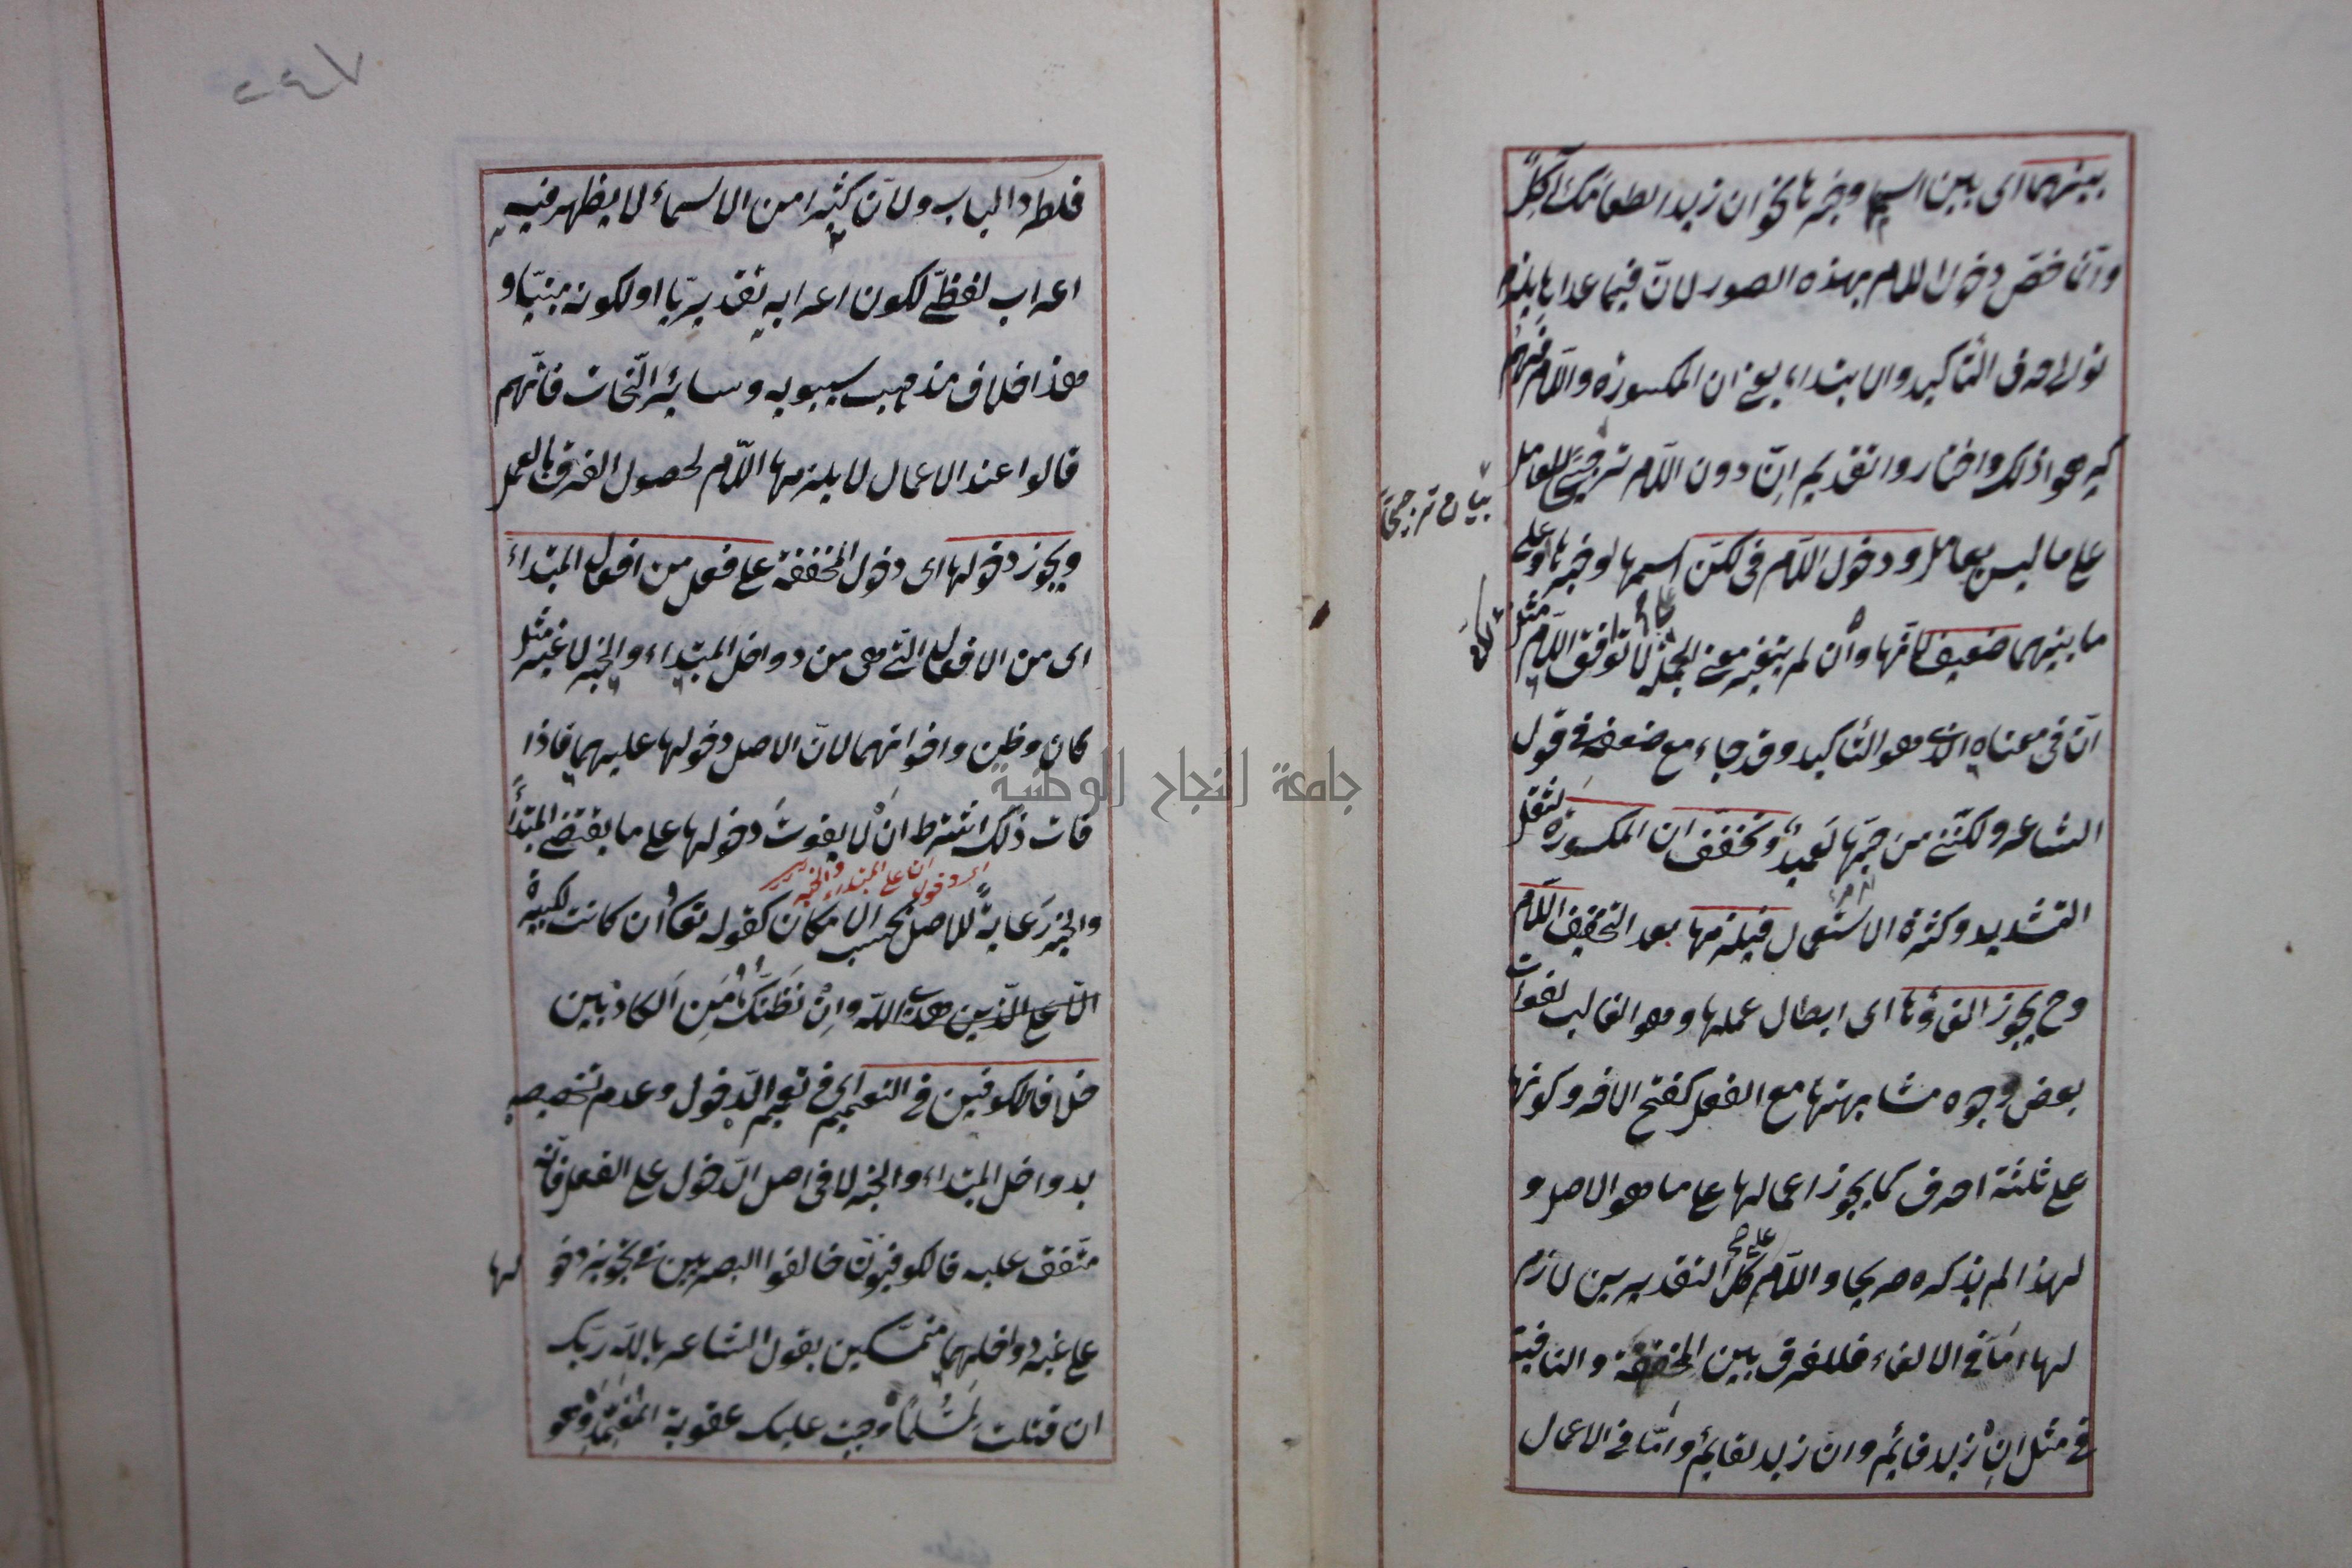 بينهما اى بين اسمها وخبرها نحو ان زيدا لطعامك آكل
وانما خص دخول اللام بهذه الصور لان فيما عداها يلزم
توالى حرفى التأكيد والابتداء يعنى ان المكسورة واللام فهم
كرهوا ذلك واختاروا تقديم انّ دون اللام ترجيحا للعامل
على ما ليس بعامل ودخول اللام فى لكنّ اسمها او خبرها او على
ما بينهما ضعيف لانها وان لم يتغير معنى الجملة لا توافق اللام مثل
انّ فى معناه الذى هو التأكيد وقد جاء مع ضعفه فى قول
الشاعر ولكننى من حبها لعميد وتخفف ان المكسورة لثقل
التشديد وكثرة الاستعمال فيلزمها بعد التخفيف اللام
وح يجوز الغاؤها اى ابطال عملها وهو الغالب لفوات
بعض وجوه مشابهتها مع الفعل كفتح الآخر وكونها
على ثلثة احرف كما يجوز اعمالها على ما هو الاصل و
لهذا لم يذكره صريحا واللام على كل التقديرين لازم
لها اما فى الالغاء فللفرق بين المخففة والنافية
فى مثل ان زيد قائم وان زيد لقائم واما فى الاعمال
بيان ترجمة
٢٤٧
فلطرد الباب ولان كثيرا من الاسماء لا يظهر فيه
اعراب لفظى لكون اعرابه تقديريا او لكونه مبنيا و
هذا خلاف مذهب سيبويه وسائر النحات فانهم
قالوا عند الاعمال لا يلزمها اللام لحصول الفرق بالعمل
ويجوز دخولها اى دخول المخففة على فعل من افعال المبتداء
اى من الافعال التى هى من دواخل المبتداء والخبر لا غير مثل
كان وظن واخواتهما لان الاصل دخولها عليهما فاذا
فات ذلك اشترط ان لا يفوت دخولها على ما يقتضى المبتدأ
اى دخول ان على المبتداء والخبر
والخبر رعاية للاصل بحسب الامكان كقوله تعا وان كانت لكبيرة
الا على الذين هدى الله وان نظنك لمن الكاذبين
خلافا للكوفيين فى التعميم اى فى تعميم الدخول وعدم تخصيصه
بدواخل المبتداء والخبر لا فى اصل الدخول على الفعل فانه
متفق عليه فالكوفيون خالفوا البصريين فى تجويز دخولها
على غير دواخلهما متمسكين بقول الشاعر بالله ربك
ان قتلت لمسلما وجبت عليك عقوبة المتعمد وهو
جامعة النجاح الوطنية